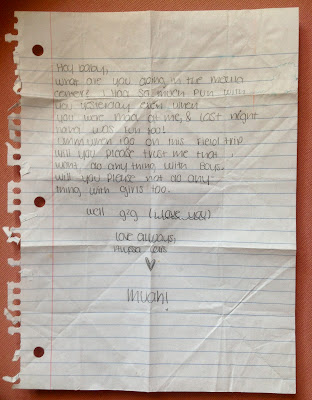 Hey baby,
what are you doing in the media
center? I had so much fun with
you yesterday even when
you were mad at me, & last night
hahd was fun too!
when I go on this field trip
will you please trust me that I
wont do anything with boys.
will you please not do any-
thing with girls too.
well g2g (I love you)
love always,
♥
muah!